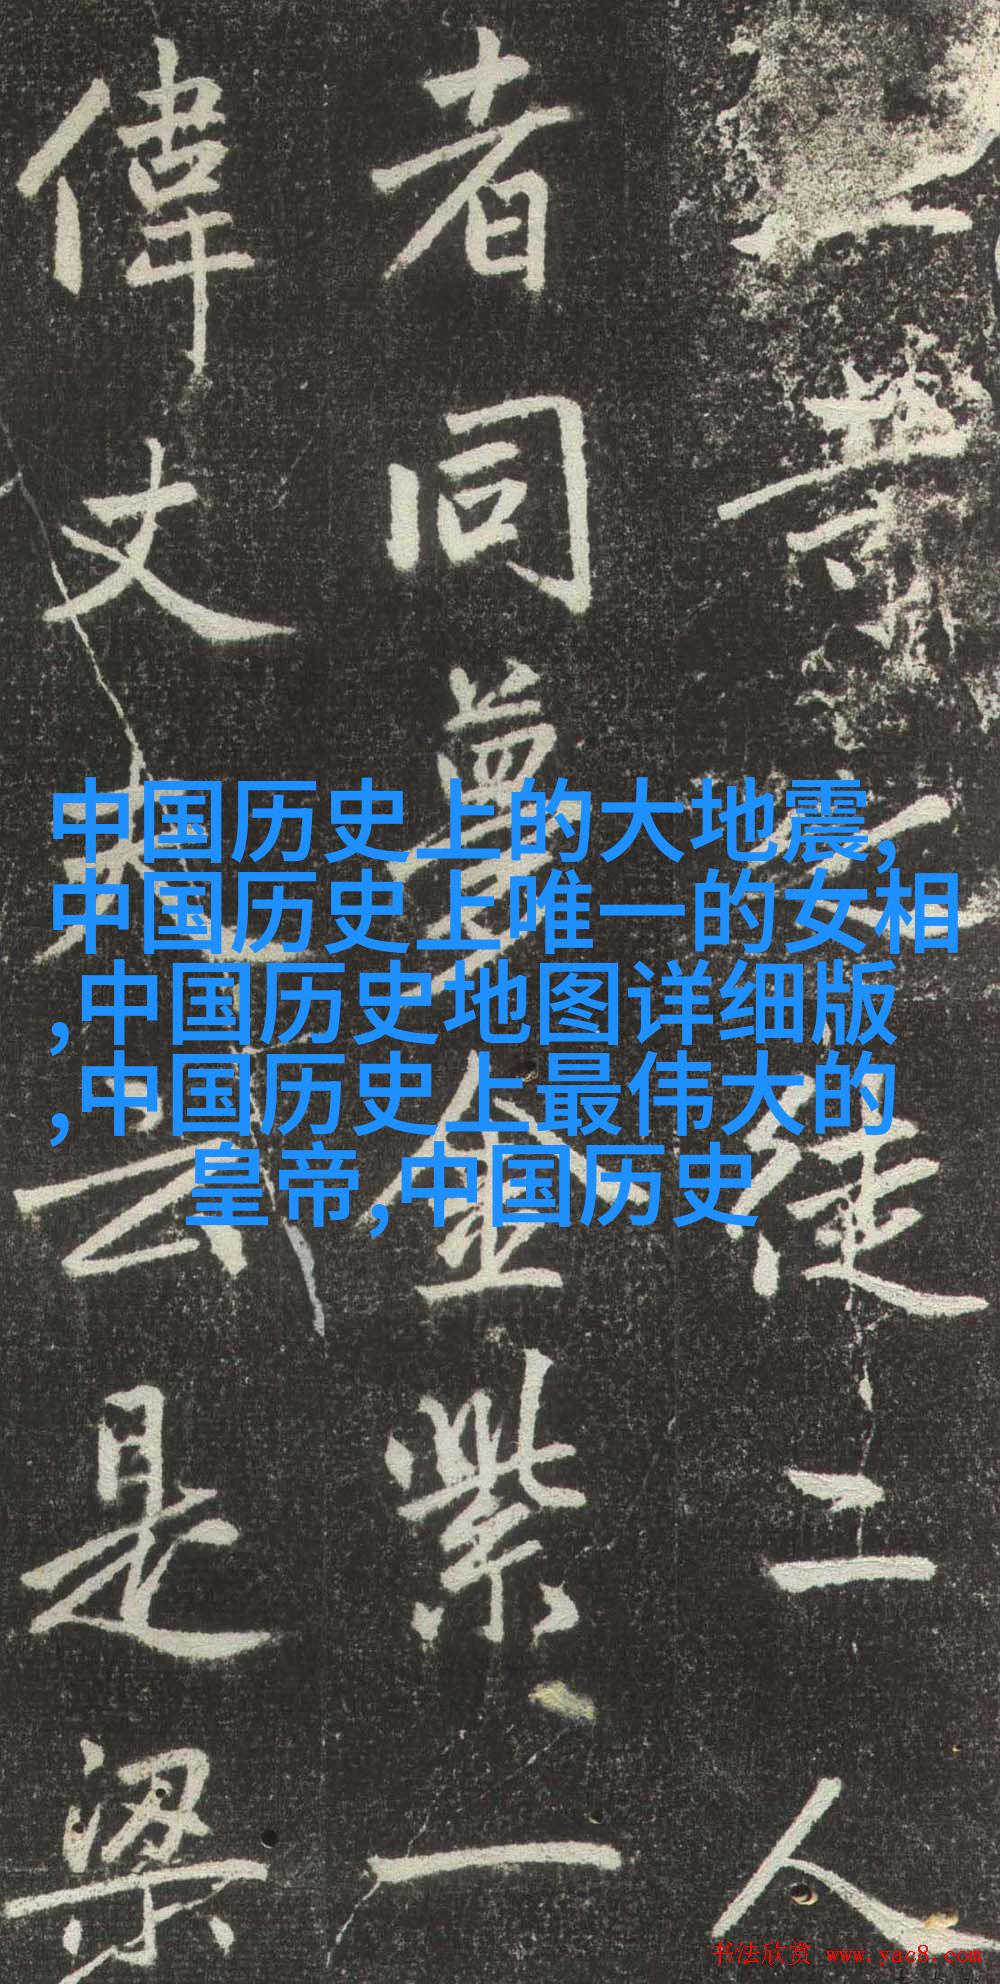 中国历史上的大地震,
中国历史上唯一的女相
,中国历史地图详细版
,中国历史上最伟大的
皇帝,中国历史
業徒二人
者同夢金紫一
偉丈夫云是梁
书法欣赏 www.yac8.com